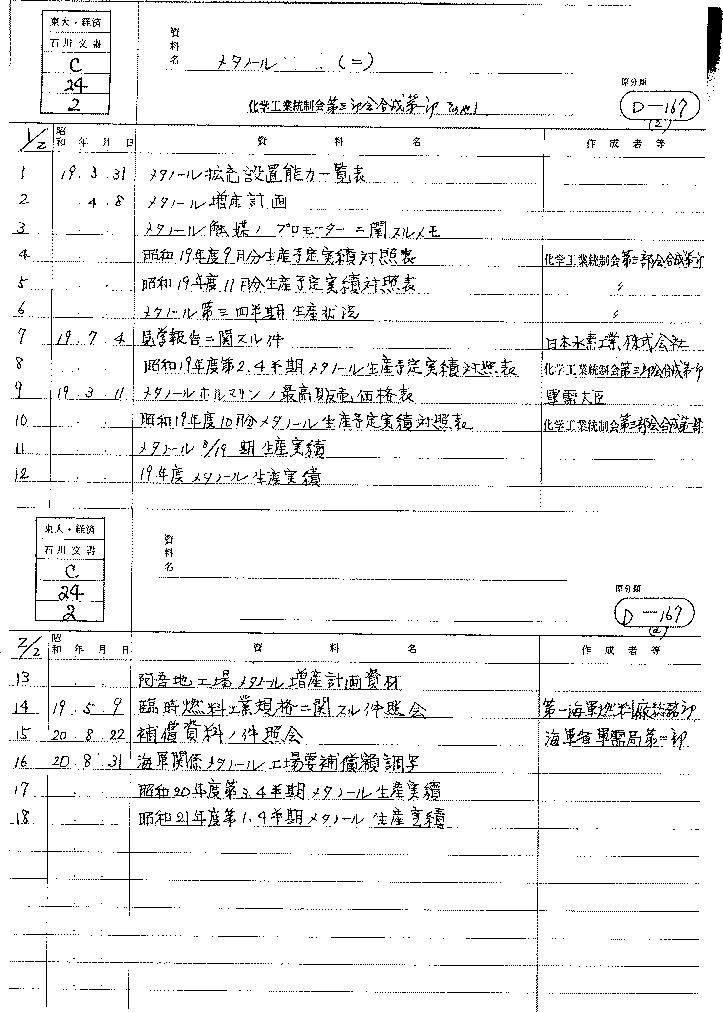 東大・経済
石川文書
C
24
2
資料名
メタノール (二)
化学工業統制会第三部会合成第一部
原分類
D-167
(2)
1/2 昭和 年 月 日 資料名 作成者等
1 19. 3. 31 メタノール拡充設置能力一覧表
2 . 4. 8 メタノール増産計画
3 メタノール触媒ノプロモーターニ関スルメモ
4 昭和19年度9月分生産予定実績対照表 化学工業統制会第三部会合成第一部
5 昭和19年度11月分生産予定実績対照表 〃
6 メタノール第三四半期生産状況 〃
7 19. 7. 4 見学報告ニ関スル件 日本水素工業株式会社
8 昭和19年度第2.4半期メタノール生産予定実績対照表 化学工業統制会第三部会合成第一部
9 19. 3. 11 メタノールホルマリンノ最高販売価格表 軍需大臣
10 昭和19年度10月分メタノール生産予定実績対照表 化学工業統制会第三部会合成
11 メタノール 8/19 期生産実績
12 19年度メタノール生産実績
東大・経済
石川文書
C
24
2
資料名
原分類
D-167
(2)
2/2 昭和 年 月 日 資料名 作成者等
13 阿吾地工場メタノール増産計画資材
14 19. 5. 9 臨時燃料工業規格ニ関スル件照会 第一海軍燃料廠総務部
15 20. 8. 22 補償資料ノ件照会 海軍省軍需局第二部
16 20. 8. 31 海軍関係メタノール工場要補償額調
17 昭和20年度第3.4半期メタノール生産実績
18 昭和21年度第1.4半期メタノール生産実績